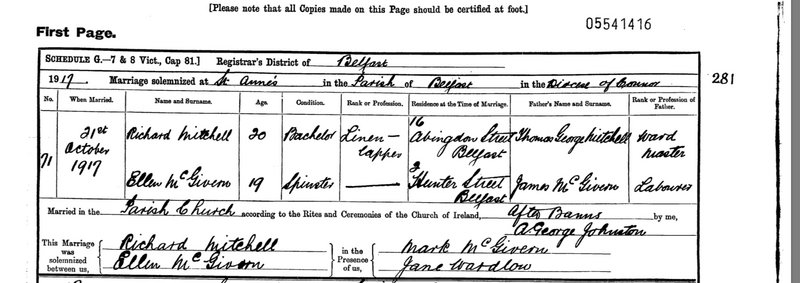 [Please note that all Copies made on this Page should be certified at foot.]
05541416
First Page.
SCHEDULE G.—7 & 8 Vict., Cap 81.] Registrar's District of Belfast
1917. Marriage solemnized at St Anne's in the Parish of Belfast in the Diocese of Connor
281
No. When Married. Name and Surname. Age. Condition. Rank or Profession. Residence at the Time of Marriage. Father's Name and Surname. Rank or Profession of Father.
71 21st October 1917 Richard Mitchell 20 Bachelor Linen-lapper 16 Abingdon Street Belfast Thomas George Mitchell Ward Master
Ellen McGivern 19 Spinster — 2 Hunter Street Belfast James McGivern Labourer
Married in the Parish Church according to the Rites and Ceremonies of the Church of Ireland, After Banns by me,
A George Johnston
This Marriage was solemnized between us, Richard Mitchell
Ellen McGivern
in the Presence of us, Mark McGivern
Jane Wardlow